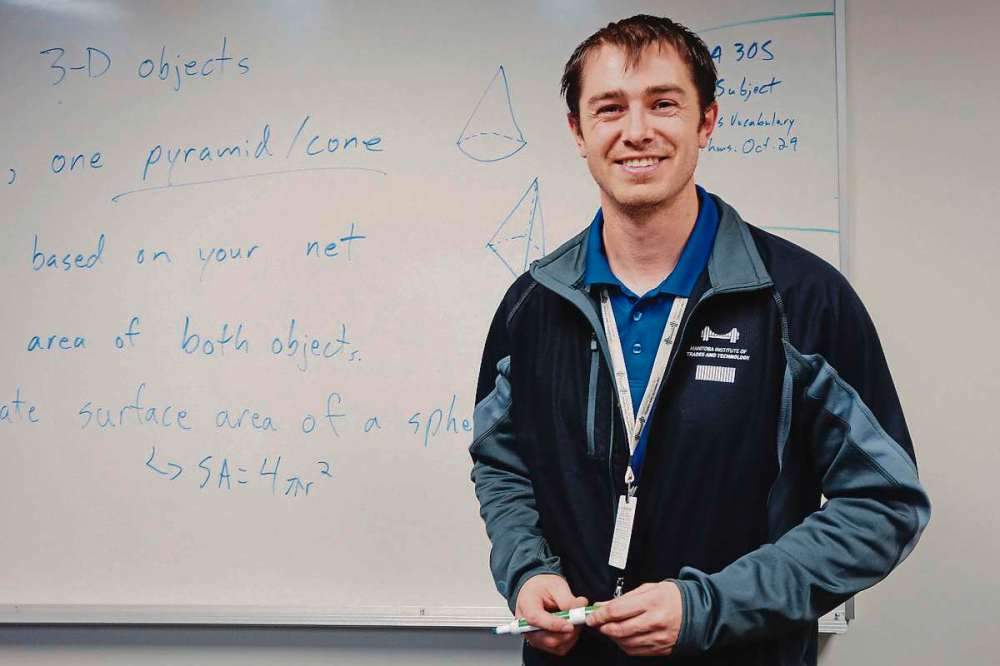 3-D objects
, one pyramid/cone
based on your net
area of both objects.
ate surface area of a sphe
↳ SA = 4πr²
A 30S
Subject
s Vocabulary
hws. Oct. 29
MANITOBA INSTITUTE OF
TRADES AND TECHNOLOGY